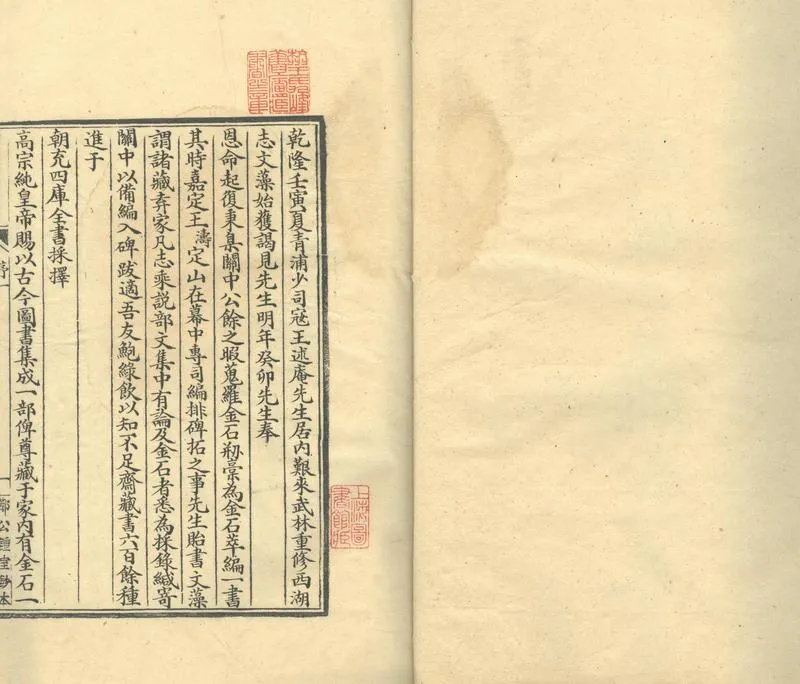 乾隆壬寅夏青浦少司寇王述庵先生居內艱來武林重修西湖
志文藻始獲謁見先生明年癸卯先生奉
恩命起復秉臬關中公餘之暇蒐羅金石刱藁為金石萃編一書
其時嘉定王濤定山在幕中專司編排碑拓之事先生貽書文藻
謂諸藏弆家凡志乘說部文集中有論及金石者悉為採錄緘寄
關中以備編入碑跋適吾友鮑綠飲以知不足齋藏書六百餘種
進于
朝充四庫全書採擇
高宗純皇帝賜以古今圖書集成一部俾尊藏于家內有金石一
序一
鄦公鍾室鈔本
上海圖書館藏